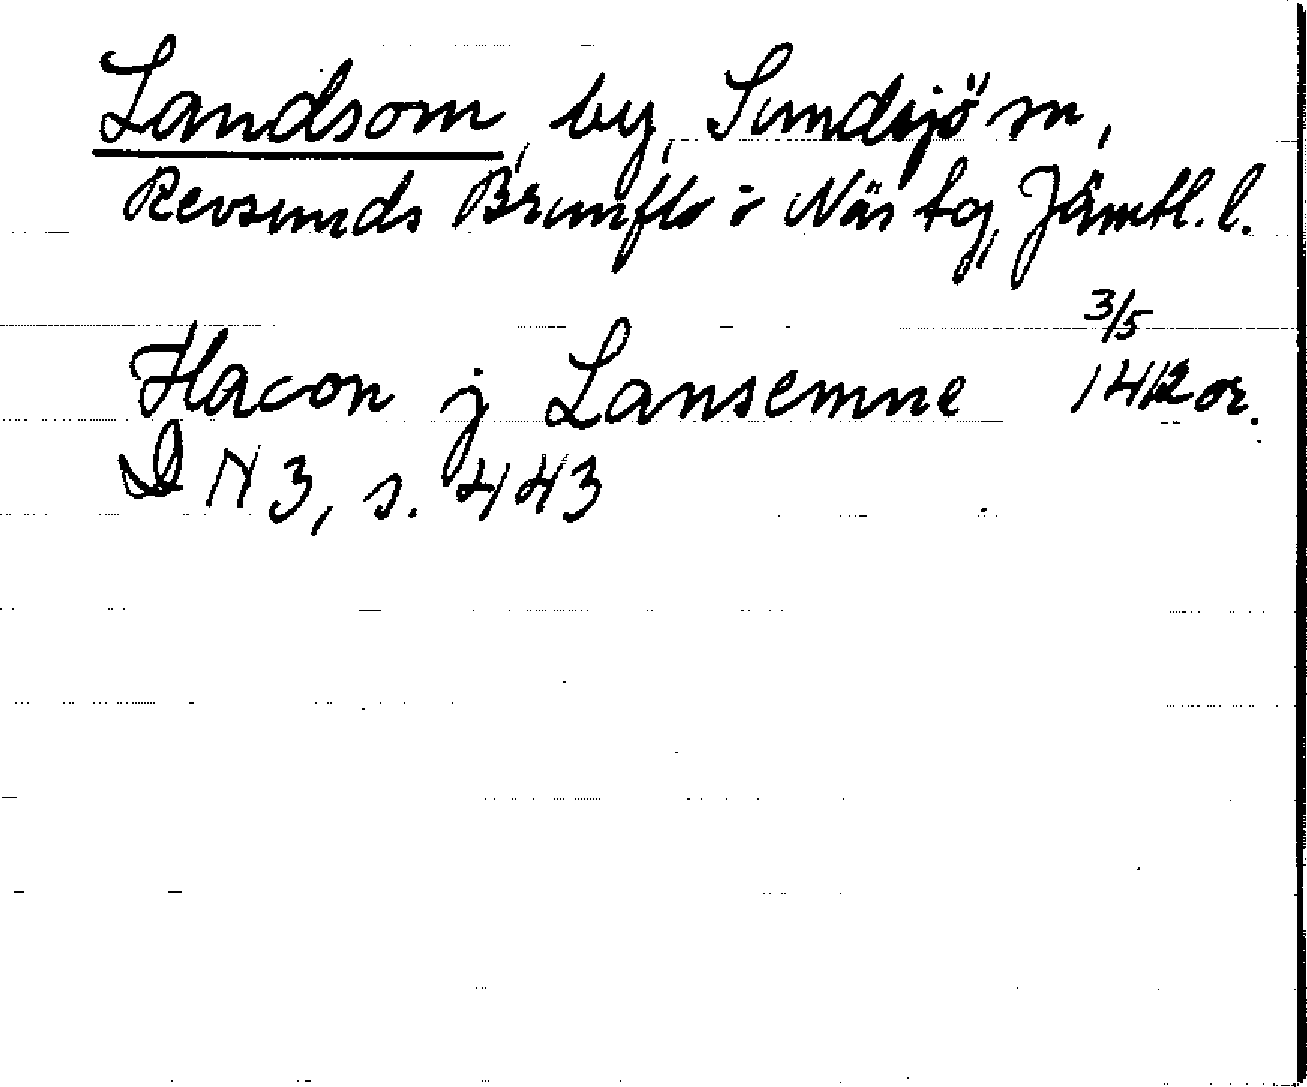 Landsom, by, Sundsjö sn,
Revsunds Brunflo o Näs tg, Jämtl. l.
3/5
Hacon j Lansemne 1412 or.
DN 3, s. 443